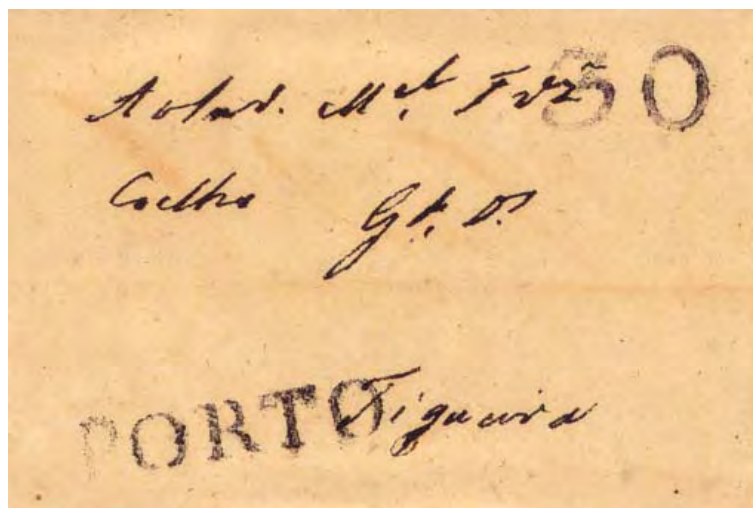 Ao Snr. Mel. Frz 50
Coelho Gde. Ds.
PORTO Figueira